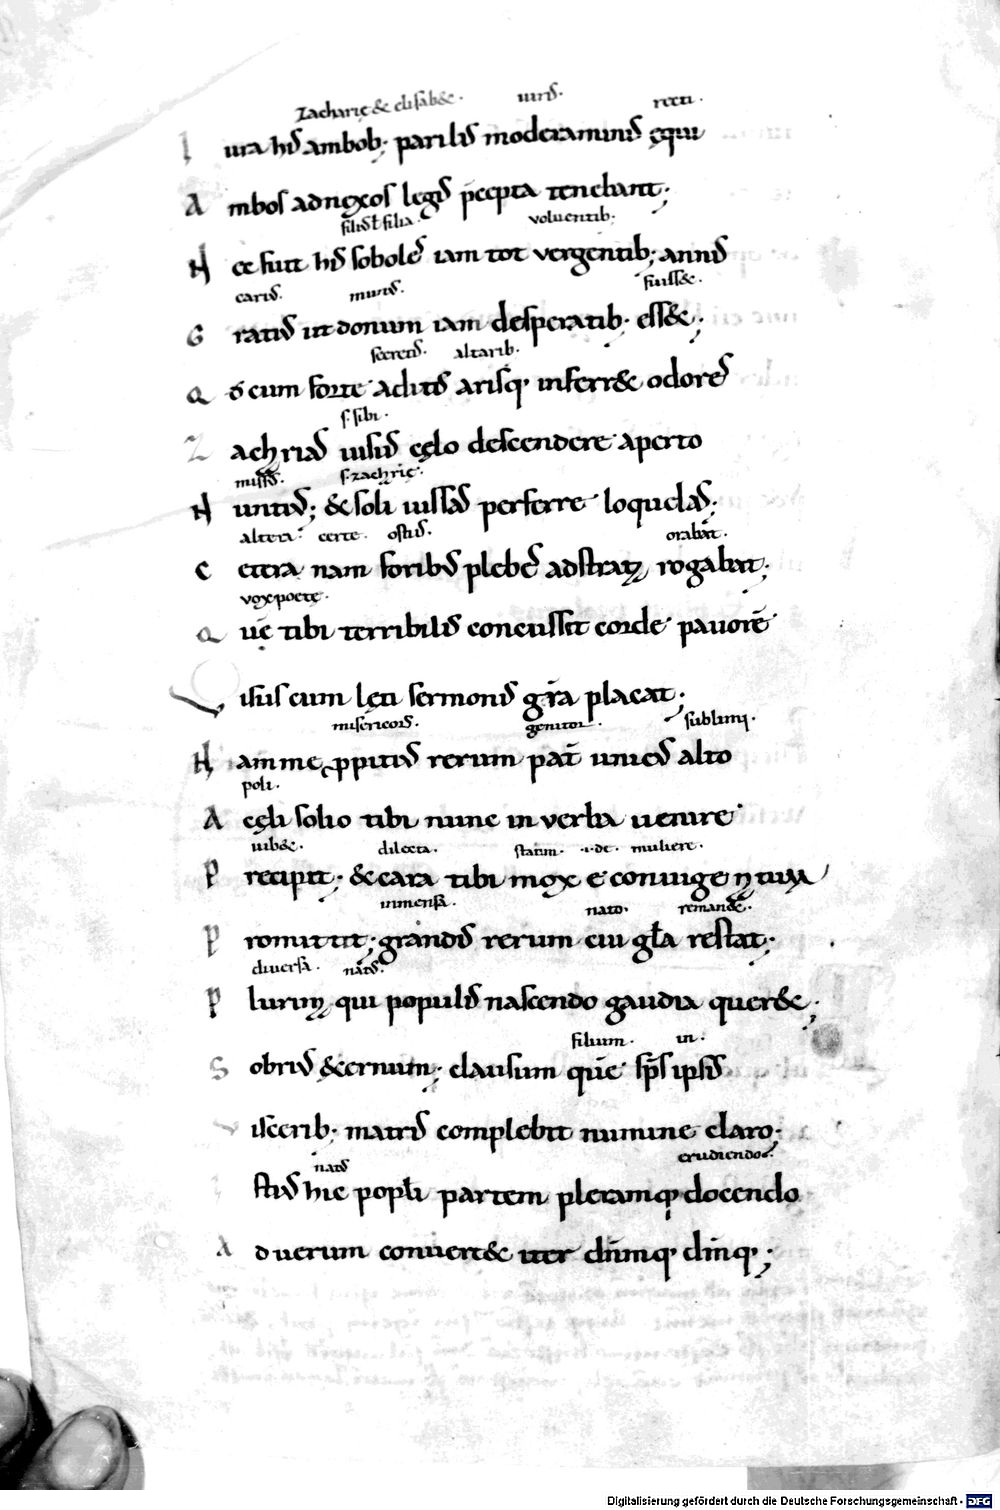 Zacharię & elisab&. iuris. recti.
I ura his ambob; parilis moderaminis ęqui
A mbos adnexos legis p̄cepta tenebant;
filiꝰ ł filia. voluentib;
N ec fuit his soboles iam tot vergentib; annis
carꝰ. munꝰ. fuiss&.
G ratius ut donum iam desperatib; ess&;
secretis. altarib.
Q ō cum forte aditis arisq; inferr& odores
s. sibi.
Z achꝛias uisus cęlo descendere aperto
missꝰ. s. zachrię.
N untius; & soli iussas perferre loquelas;
altera. certe. ostiis. orabat̄.
C etera nam foribus plebes adstrata rogabat;
vox poetę.
Q uē tibi terribilis concussit corde pauorē
V isus cum lęti sermonis gr̄a placat;
misericors. genitor. sublimi.
N am me ꝓpitius rerum pat̄ unicus alto
poli.
A cęli solio tibi nunc in verba uenire
iub&. dilecta. statim. .i. de. muliere.
P recipit; & cara tibi mox e coniuge natum
inmensa. nato. reman&.
P romittit; grandis rerum cui gl̄a restat;
diuersa. natus.
P lurima qui populis nascendo gaudia quer&;
filium. in.
S obrius &ernum; clausum quē sp̄s ipsis
V iscerib; matris complebit numine claro;
natꝰ erudiendo.
I stius hic popł̄i partem pleramq; docendo
A d uerum conuert& iter dn̄mq; dm̄q;
Digitalisierung gefördert durch die Deutsche Forschungsgemeinschaft - DFG